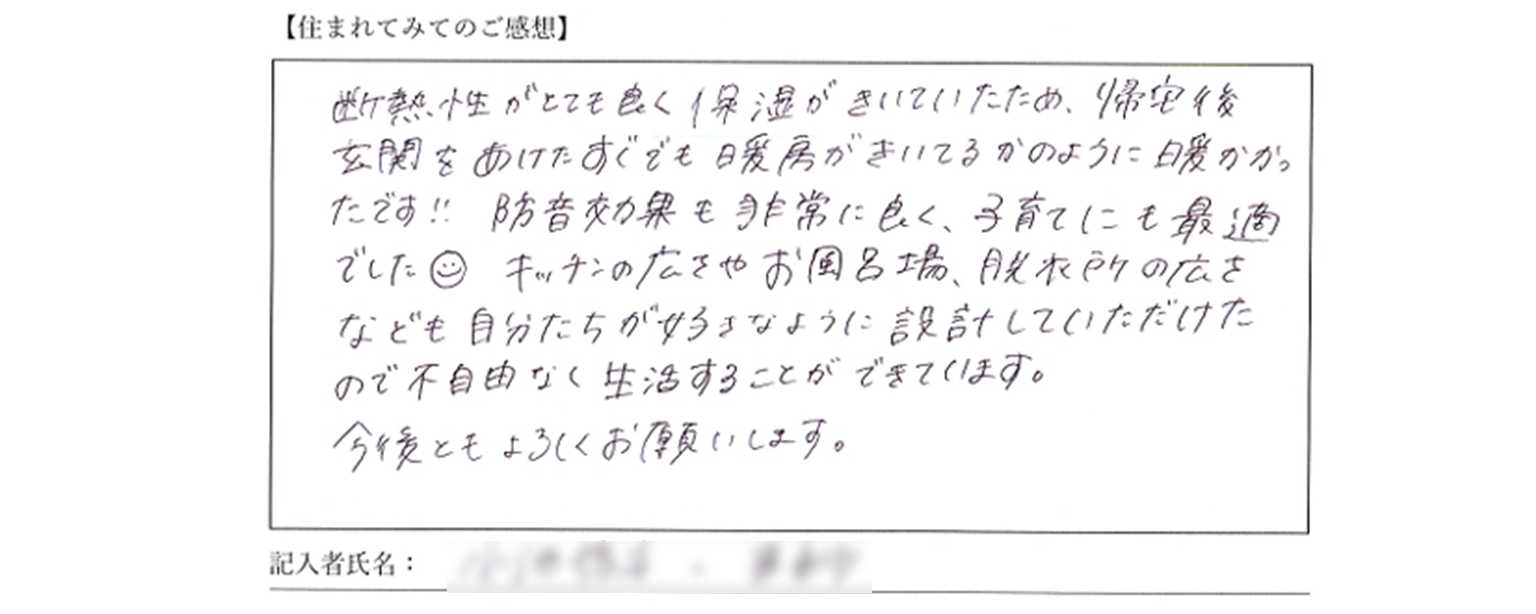 【住まれてみてのご感想】
断熱性がとても良く保湿がきいていたため、帰宅後
玄関をあけたすぐでも暖房がきいてるかのように暖かかっ
たです!! 防音効果も非常に良く、子育てにも最適
でした☺ キッチンの広さやお風呂場、脱衣所の広さ
なども自分たちが好きなように設計していただけた
ので不自由なく生活することができています。
今後ともよろしくお願いします。
記入者氏名：